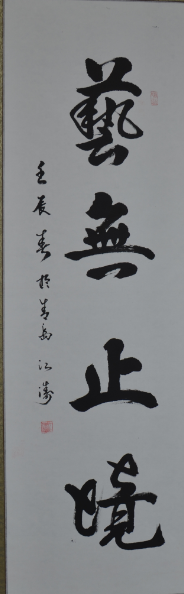 藝無止境
壬辰春於青島江濤